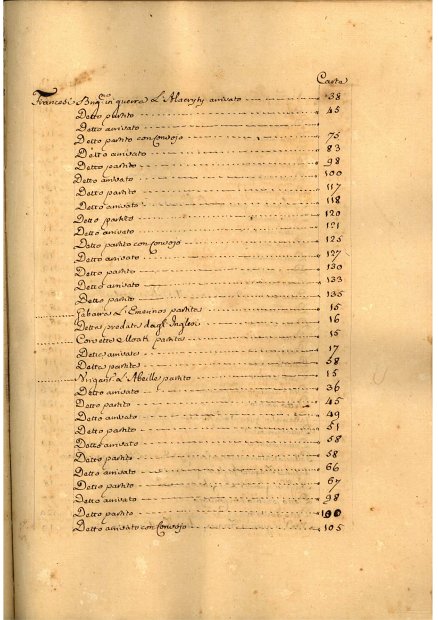 Carta
Francesi Brig.no in guerra L'Alacryty arrivato 38
Detto partito 45
Detto arrivato
Detto partito con Convojo 75
Detto arrivato 83
Detto partito 98
Detto arrivato 100
Detto partito 117
Detto arrivato 118
Detto partito 120
Detto arrivato 121
Detto partito con Convojo 125
Detto arrivato 127
Detto partito 130
Detto arrivato 133
Detto partito 135
L'Emerinos partito 15
Detto predato dagl'Inglesi 16
Corvetta partito 15
Detto arrivato 17
Detto partito 58
L'Abeille partito 15
Detto arrivato 36
Detto partito 45
Detto arrivato 49
Detto partito 51
Detto arrivato 58
Detto partito 58
Detto arrivato 66
Detto partito 67
Detto arrivato 98
Detto partito 100
Detto arrivato con Convojo 105